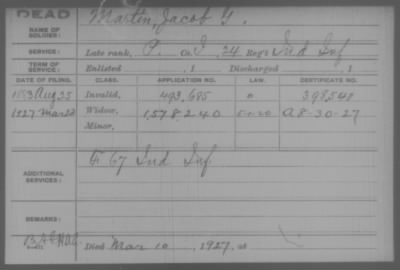 DEAD
NAME OF SOLDIER: Martin, Jacob Y.
SERVICE: Late rank, P. Co. I, 34 Reg't Ind Inf
TERM OF SERVICE: Enlisted , 1 Discharged , 1
DATE OF FILING. CLASS. APPLICATION NO. LAW. CERTIFICATE NO.
Aug 25 Invalid, 493,685
1927 Mar Widow, 1,578,240 A 8-30-27
Minor,
ADDITIONAL SERVICES: F 67 Ind Inf
REMARKS:
Died Mar 10, 1927, at